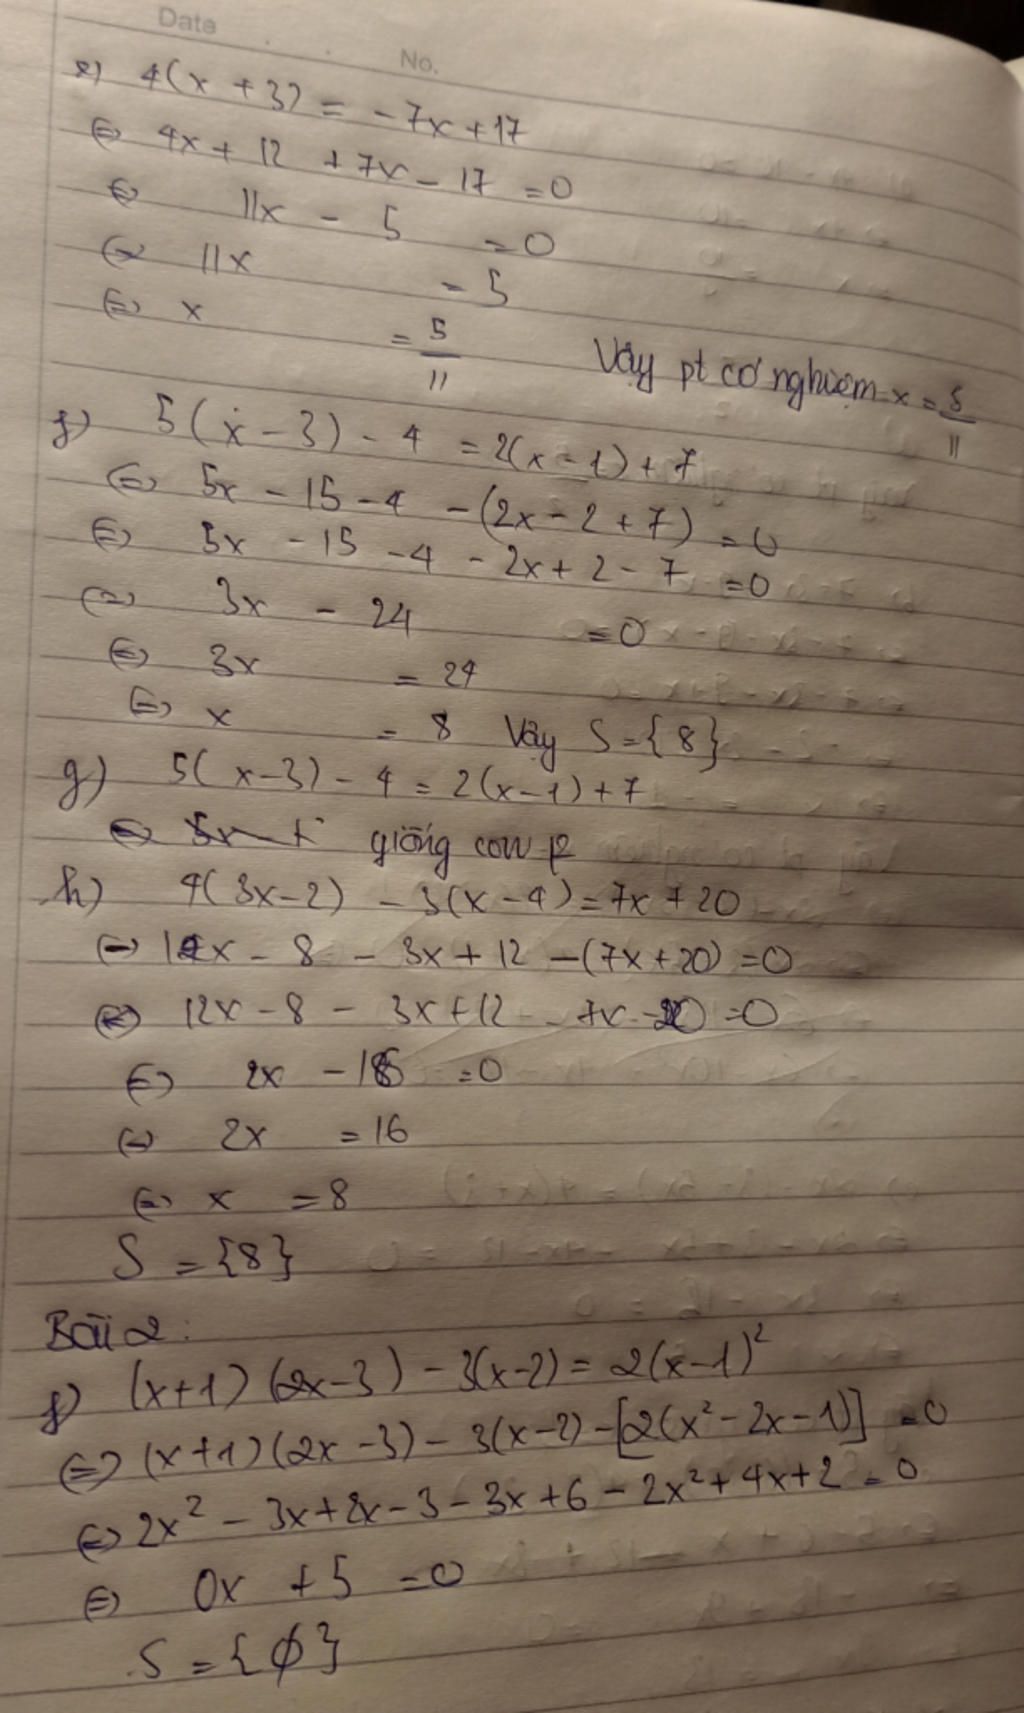 Date
No.
e) 4(x + 3) = -7x + 17
⇔ 4x + 12 + 7x - 17 = 0
⇔ 11x - 5 = 0
⇔ 11x = 5
⇔ x = 5/11 Vậy pt có nghiệm x = 5/11
f) 5(x - 3) - 4 = 2(x - 1) + 7
⇔ 5x - 15 - 4 - (2x - 2 + 7) = 0
⇔ 5x - 15 - 4 - 2x + 2 - 7 = 0
⇔ 3x - 24 = 0
⇔ 3x = 24
⇔ x = 8 Vậy S = {8}
g) 5(x - 3) - 4 = 2(x - 1) + 7
giống câu f
h) 4(3x - 2) - 3(x - 4) = 7x + 20
⇔ 12x - 8 - 3x + 12 - (7x + 20) = 0
⇔ 12x - 8 - 3x + 12 - 7x - 20 = 0
⇔ 2x - 16 = 0
⇔ 2x = 16
⇔ x = 8
S = {8}
Bài 2:
f) (x + 1)(2x - 3) - 3(x - 2) = 2(x - 1)²
⇔ (x + 1)(2x - 3) - 3(x - 2) - [2(x² - 2x - 1)] = 0
⇔ 2x² - 3x + 2x - 3 - 3x + 6 - 2x² + 4x + 2 = 0
⇔ 0x + 5 = 0
S = {∅}